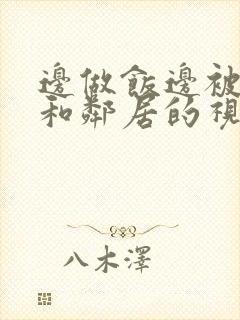 邊做飯邊被
和鄰居的視
八木澤